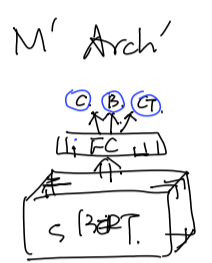 M' Arch'
C. B. CT.
FC
S BERT.